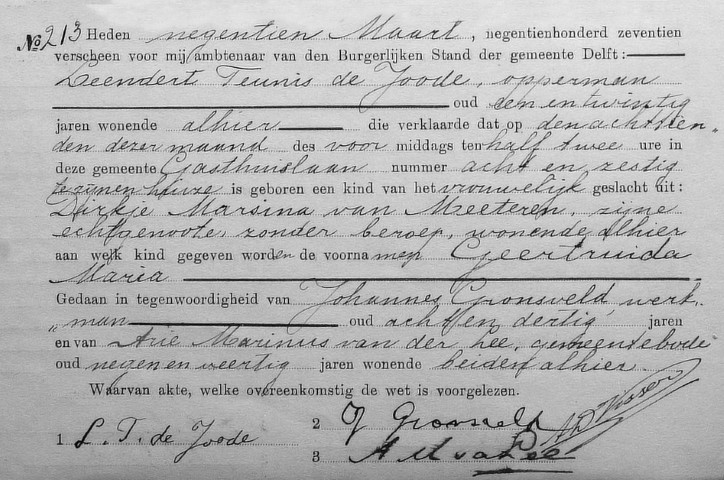 No 213 Heden negentien Maart, negentienhonderd zeventien
verscheen voor mij ambtenaar van den Burgerlijken Stand der gemeente Delft:
Leendert Teunis de Joode, opperman
oud een en twintig
jaren wonende alhier die verklaarde dat op den achttien„
den dezer maand des voor middags ten half twee ure in
deze gemeente Gasthuislaan nummer acht en zestig
te zijnen huize is geboren een kind van het vrouwelijk geslacht uit:
Dirkje Marsina van Meeteren, zijne
echtgenoote, zonder beroep, wonende alhier
aan welk kind gegeven worden de voornamen Geertruida
Maria
Gedaan in tegenwoordigheid van Johannes Gronsveld, werk„
„man oud acht en dertig jaren
en van Arie Marinus van der Lee, gemeentebode
oud negen en veertig jaren wonende beiden alhier.
Waarvan akte, welke overeenkomstig de wet is voorgelezen.
1 L. T. de Joode
2 J Gronsveld
3 A M v d Lee